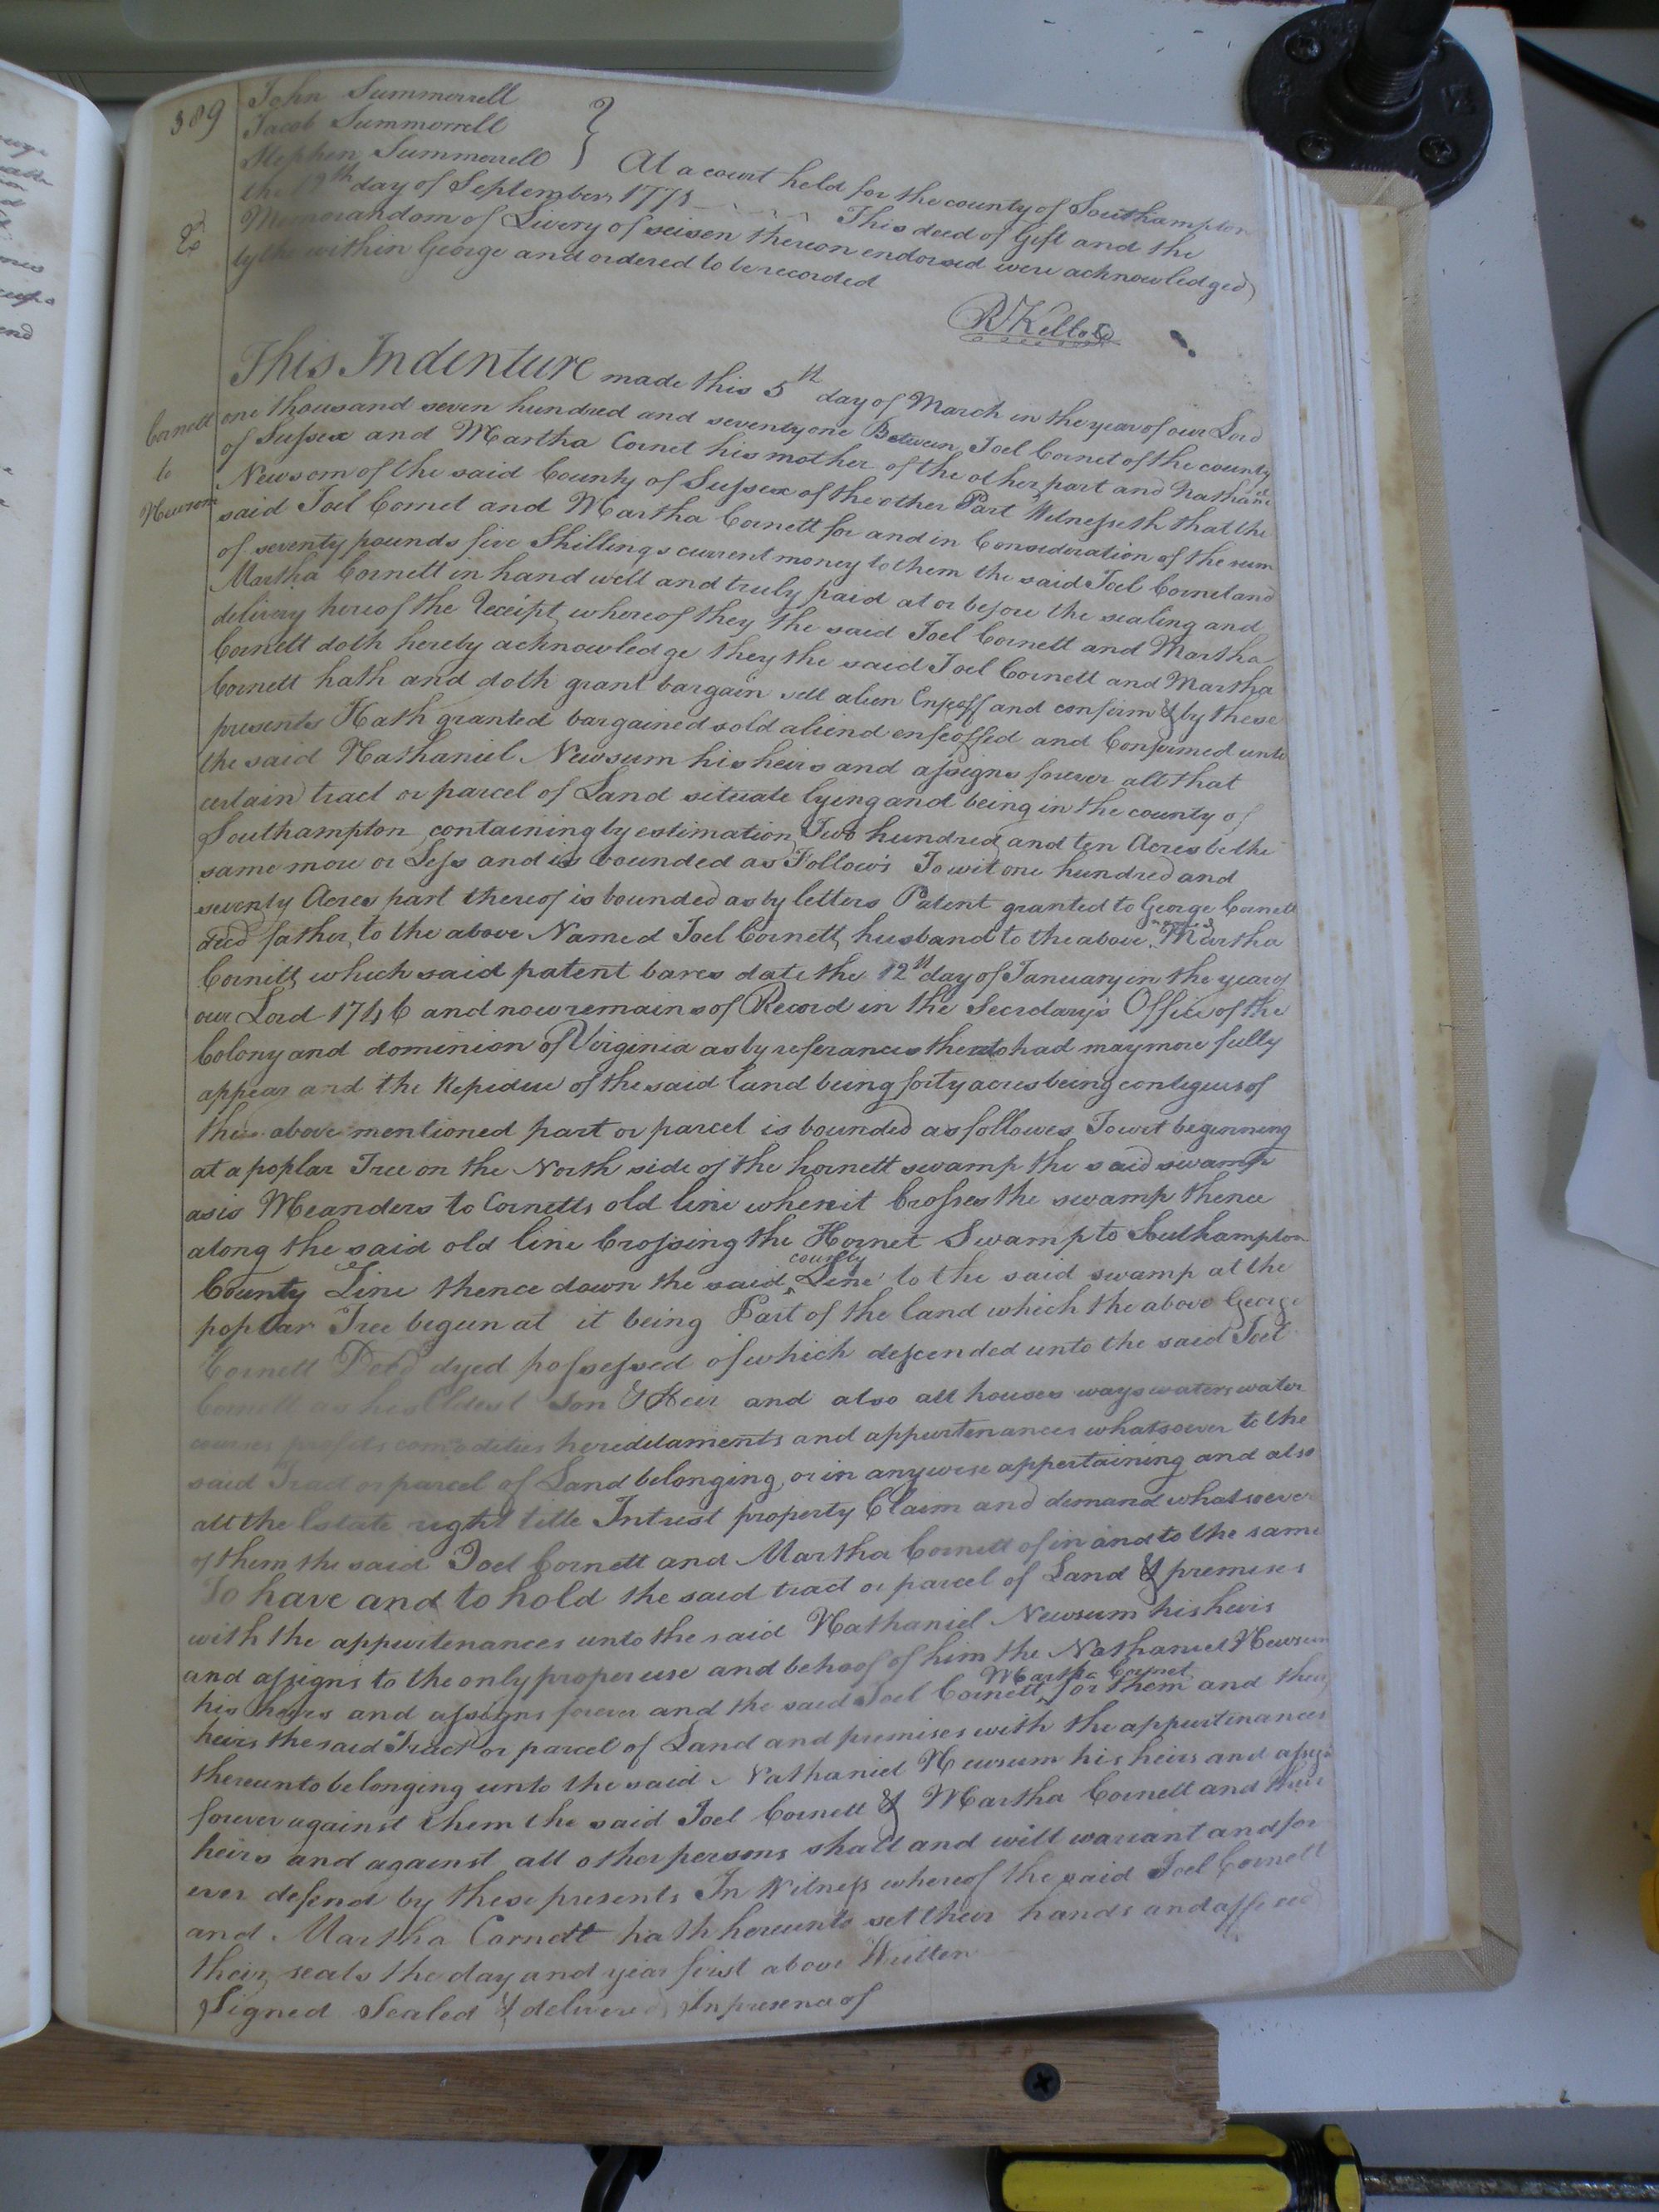 389
John Summerrell
Jacob Summorrell
Stephen Summerrell } At a court held for the county of Southampton
the 12th day of September 1771 This deed of Gift and the
Memorandom of Livery of seisen thereon endorsed were acknowledged
by the within George and ordered to be recorded
Ex
R Kello
Cornett
to
Newsom
This Indenture made this 5th day of March in the year of our Lord
one thousand seven hundred and seventy one Between Joel Cornet of the county
of Sussex and Martha Cornet his mother of the other part and Nathaniel
Newsom of the said County of Sussex of the other Part Witnesseth that the
said Joel Cornet and Martha Cornett for and in Consideration of the sum
of seventy pounds five Shillings current money to them the said Joel Cornet and
Martha Cornett in hand well and truly paid at or before the sealing and
delivery hereof the Receipt whereof they the said Joel Cornett and Martha
Cornett doth hereby acknowledge they the said Joel Cornett and Martha
Cornett hath and doth grant bargain sell alien Enfeoff and confirm & by these
presents Hath granted bargained sold aliend enfeoffed and Confirmed unto
the said Nathaniel Newsum his heirs and assigns forever all that
certain tract or parcel of Land situate lying and being in the county of
Southampton containing by estimation Two hundred and ten Acres be the
same more or Less and is bounded as Follows To wit one hundred and
seventy Acres part thereof is bounded as by letters Patent granted to George Cornett
decd father to the above Named Joel Cornett, husband to the above named Martha
Cornett which said patent bares date the 12th day of January in the year of
our Lord 1746 and now remains of Record in the Secredary's Office of the
Colony and dominion of Virginia as by referances thereto had may more fully
appear and the Residue of the said land being forty acres being contiguis of
the above mentioned part or parcel is bounded as followes To wit beginning
at a poplar Tree on the North side of the hornett swamp the said swamp
as is Meanders to Cornetts old line where it Crosses the swamp thence
along the said old line Crossing the Hornet Swamp to Southampton
County Line thence down the said county Line to the said swamp at the
poplar Tree begun at it being Part of the land which the above George
Cornett Decd dyed possessed of which descended unto the said Joel
Cornett as his Eldest Son & Heir and also all houses ways waters water
courses profits comodities hereditaments and appurtenances whatsoever to the
said Tract or parcel of Land belonging, or in anywise appertaining and also
all the Estate right title Intrest property Claim and demand whatsoever
of them the said Joel Cornett and Martha Cornett of in and to the same
To have and to hold the said tract or parcel of Land & premises
with the appurtenances unto the said Nathaniel Newsum his heirs
and assigns to the only proper use and behoof of him the Nathaniel Newsum
his heirs and assigns forever and the said Joel Cornett, Martha Cornet for them and their
heirs the said Tract or parcel of Land and premises with the appurtinances
thereunto belonging unto the said Nathaniel Newsum his heirs and assigns
forever against them the said Joel Cornett & Martha Cornett and their
heirs and against all other persons shall and will warrant and for
ever defend by these presents In Witness whereof the said Joel Cornett
and Martha Cornett hath hereunto set their hands and affixed
their seals the day and year first above Written
Signed Sealed & delivered In presenc of